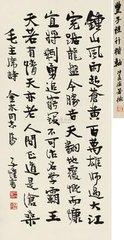 豐子愷行楷軸
鍾山風起蒼黃百萬雄師過大江
虎踞龍盤今勝昔天翻地覆慨而慷
宜將剩勇追窮寇不可沽名學霸王
天若有情天亦老人間正道是滄桑
毛主席詩
子愷書